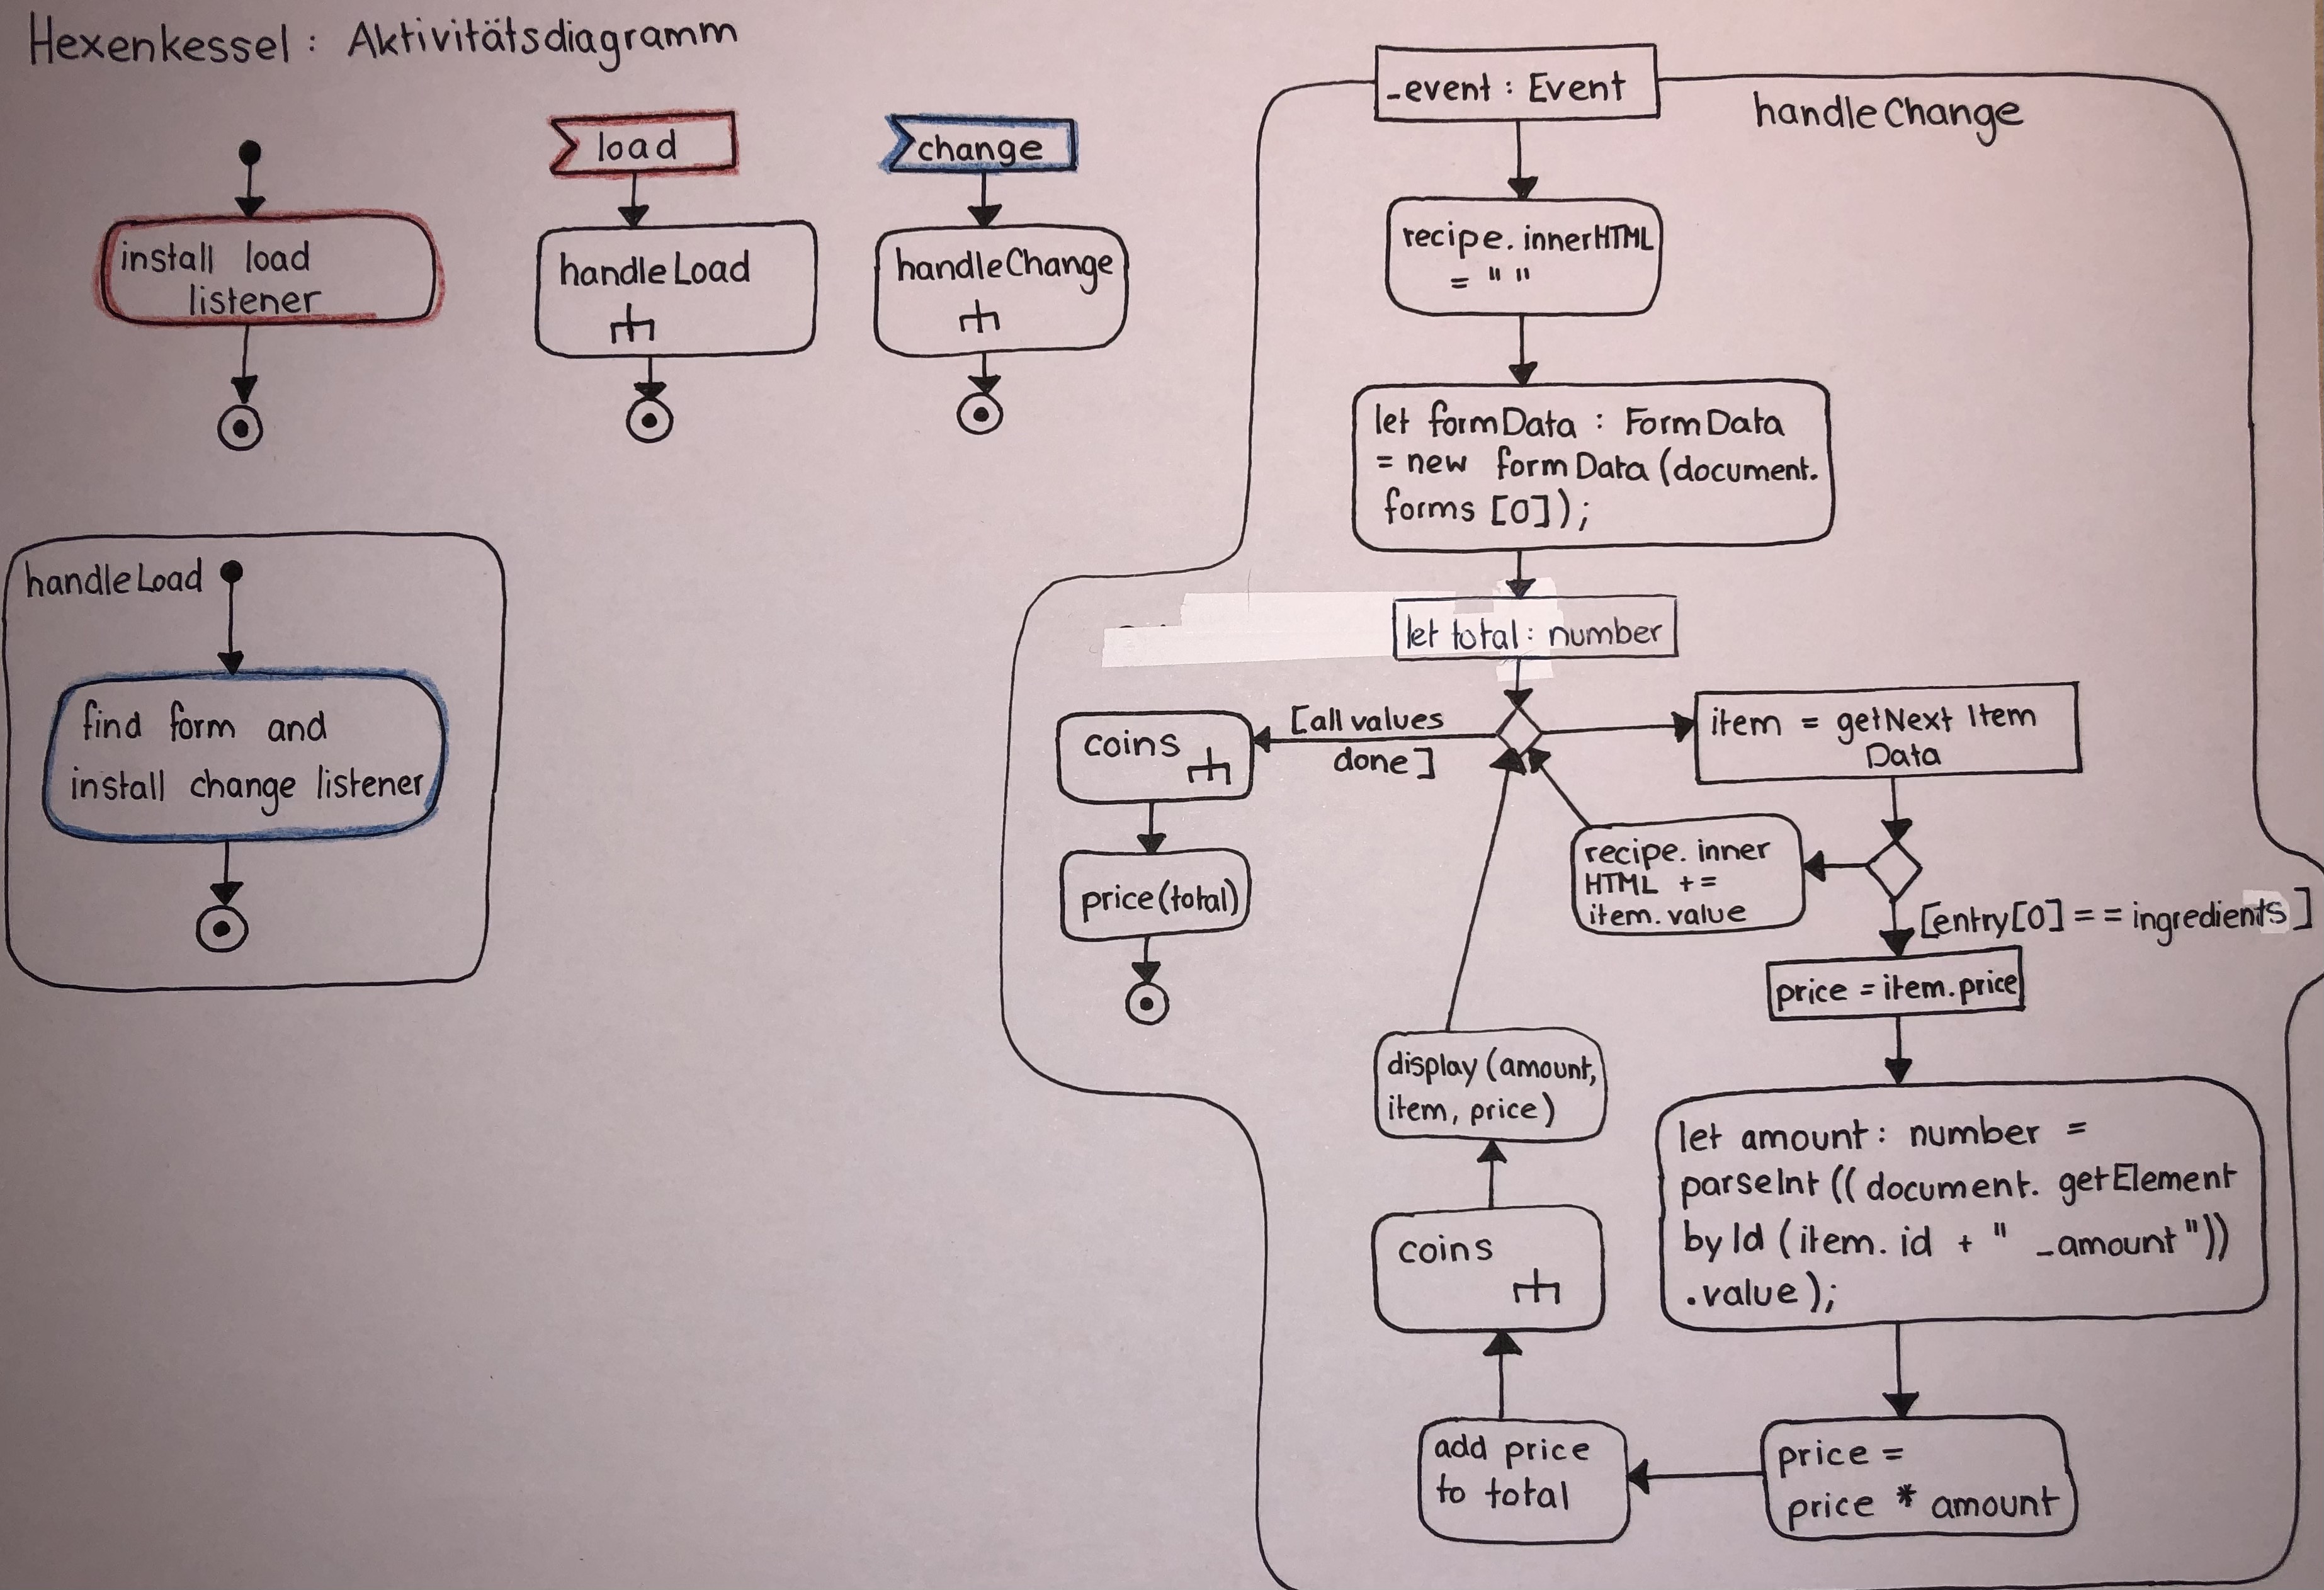 Hexenkessel: Aktivitätsdiagramm
install load
listener
load
handleLoad
change
handleChange
handleLoad
find form and
install change listener
_event : Event
handleChange
recipe.innerHTML
= " "
let formData : FormData
= new formData (document.
forms [0]);
let total: number
[all values
done]
coins
price(total)
item = getNext Item
Data
recipe.inner
HTML +=
item.value
[entry[0] == ingredients]
price = item.price
let amount: number =
parseInt ((document. getElement
by Id (item. id + " _amount"))
.value);
price =
price * amount
add price
to total
coins
display (amount,
item, price)